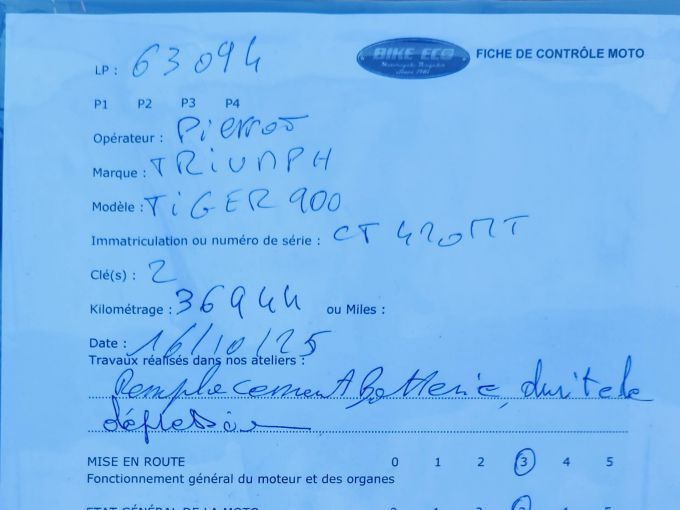 LP : 63094
BIKE ECO
FICHE DE CONTRÔLE MOTO
P1 P2 P3 P4
Opérateur : Pierrot
Marque : TRIUMPH
Modèle : TIGER 900
Immatriculation ou numéro de série : CT 420 MT
Clé(s) : 2
Kilométrage : 36944 ou Miles :
Date : 16/10/25
Travaux réalisés dans nos ateliers :
Remplacement Batterie, durite de
dépression
MISE EN ROUTE 0 1 2 3 4 5
Fonctionnement général du moteur et des organes
ETAT GÉNÉRAL DE LA MOTO 0 1 2 3 4 5